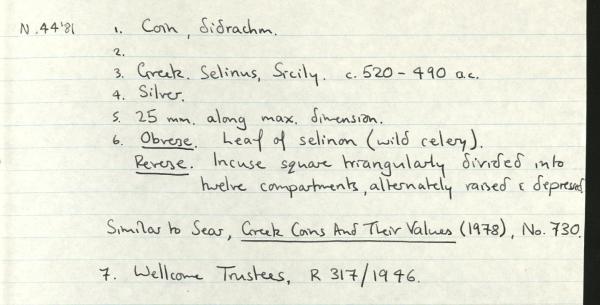 N.44'81 1. Coin, didrachm.
2.
3. Greek. Selinus, Sicily. c. 520 - 490 B.C.
4. Silver.
5. 25 mm. along max. dimension.
6. Obverse. Leaf of selinon (wild celery).
Reverse. Incuse square triangularly divided into
twelve compartments, alternately raised & depressed
Similar to Sear, Greek Coins And Their Values (1978), No. 730.
7. Wellcome Trustees, R 317/1946.